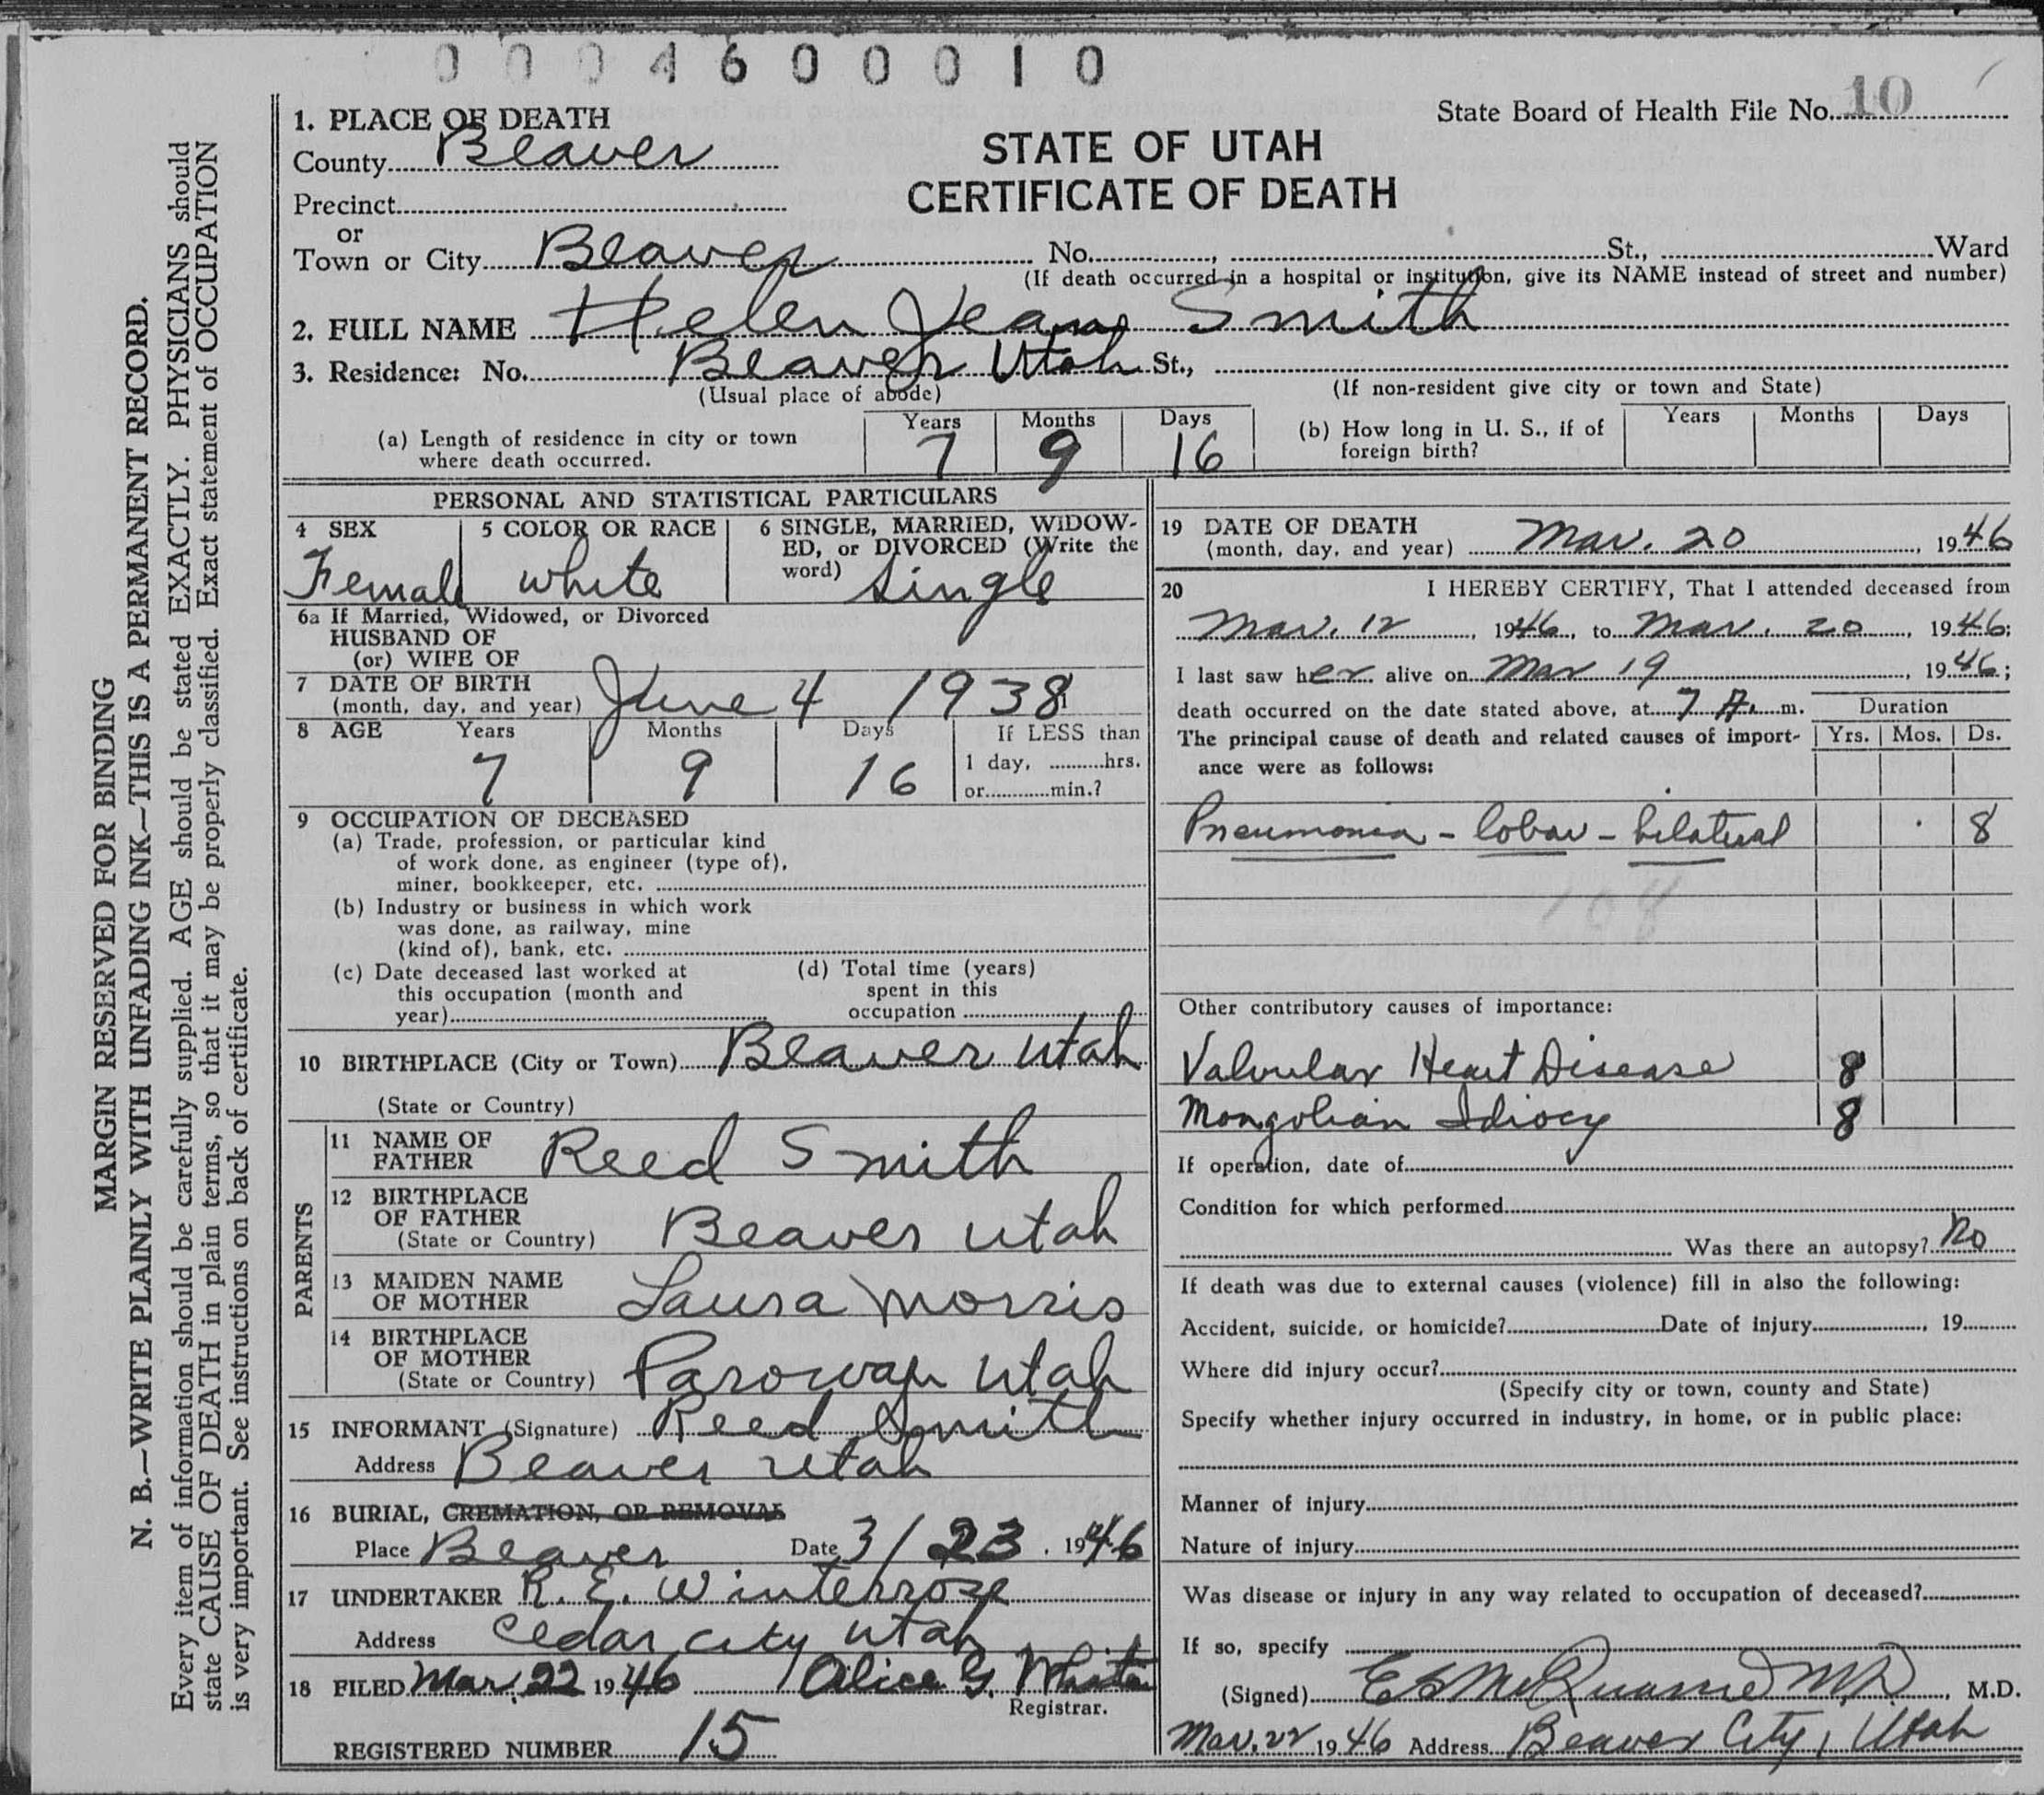 0004600010
State Board of Health File No. 10
1. PLACE OF DEATH
STATE OF UTAH
CERTIFICATE OF DEATH
County Beaver
Precinct
or
Town or City Beaver No. , St., Ward
(If death occurred in a hospital or institution, give its NAME instead of street and number)
2. FULL NAME Helen Jean Smith
3. Residence: No. Beaver Utah St.,
(Usual place of abode) (If non-resident give city or town and State)
(a) Length of residence in city or town where death occurred. Years 7 Months 9 Days 16
(b) How long in U. S., if of foreign birth? Years Months Days
PERSONAL AND STATISTICAL PARTICULARS
4 SEX Female
5 COLOR OR RACE white
6 SINGLE, MARRIED, WIDOW-
ED, or DIVORCED (Write the
word) single
6a If Married, Widowed, or Divorced
HUSBAND OF
(or) WIFE OF
7 DATE OF BIRTH
(month, day, and year) June 4 1938
8 AGE Years Months Days If LESS than
7 9 16 1 day, hrs.
or min.?
9 OCCUPATION OF DECEASED
(a) Trade, profession, or particular kind
of work done, as engineer (type of),
miner, bookkeeper, etc.
(b) Industry or business in which work
was done, as railway, mine
(kind of), bank, etc.
(c) Date deceased last worked at
this occupation (month and
year)
(d) Total time (years)
spent in this
occupation
10 BIRTHPLACE (City or Town) Beaver Utah
(State or Country)
PARENTS
11 NAME OF
FATHER Reed Smith
12 BIRTHPLACE
OF FATHER
(State or Country) Beaver Utah
13 MAIDEN NAME
OF MOTHER Laura Morris
14 BIRTHPLACE
OF MOTHER
(State or Country) Parowan Utah
15 INFORMANT (Signature) Reed Smith
Address Beaver Utah
16 BURIAL, CREMATION, OR REMOVAL
Place Beaver Date 3/23, 1946
17 UNDERTAKER R. E. Winterrose
Address Cedar City Utah
18 FILED Mar. 22 1946 Alice G.
Registrar.
REGISTERED NUMBER 15
19 DATE OF DEATH
(month, day, and year) Mar. 20, 1946
20 I HEREBY CERTIFY, That I attended deceased from
Mar. 12, 1946, to Mar. 20, 1946;
I last saw her alive on Mar 19, 1946;
death occurred on the date stated above, at 7 A. m. Duration
The principal cause of death and related causes of import- Yrs. Mos. Ds.
ance were as follows:
Pneumonia - lobar - bilateral 8
108
Other contributory causes of importance:
Valvular Heart Disease 8
Mongolian Idiocy 8
If operation, date of
Condition for which performed
Was there an autopsy? no
If death was due to external causes (violence) fill in also the following:
Accident, suicide, or homicide? Date of injury , 19
Where did injury occur?
(Specify city or town, county and State)
Specify whether injury occurred in industry, in home, or in public place:
Manner of injury
Nature of injury
Was disease or injury in any way related to occupation of deceased?
If so, specify
(Signed) M.D., M.D.
Mar. 22 1946 Address Beaver City, Utah
MARGIN RESERVED FOR BINDING
N. B.—WRITE PLAINLY WITH UNFADING INK—THIS IS A PERMANENT RECORD.
Every item of information should be carefully supplied. AGE should be stated EXACTLY. PHYISICIANS should
state CAUSE OF DEATH in plain terms, so that it may be properly classified. Exact statement of OCCUPATION
is very important. See instructions on back of certificate.